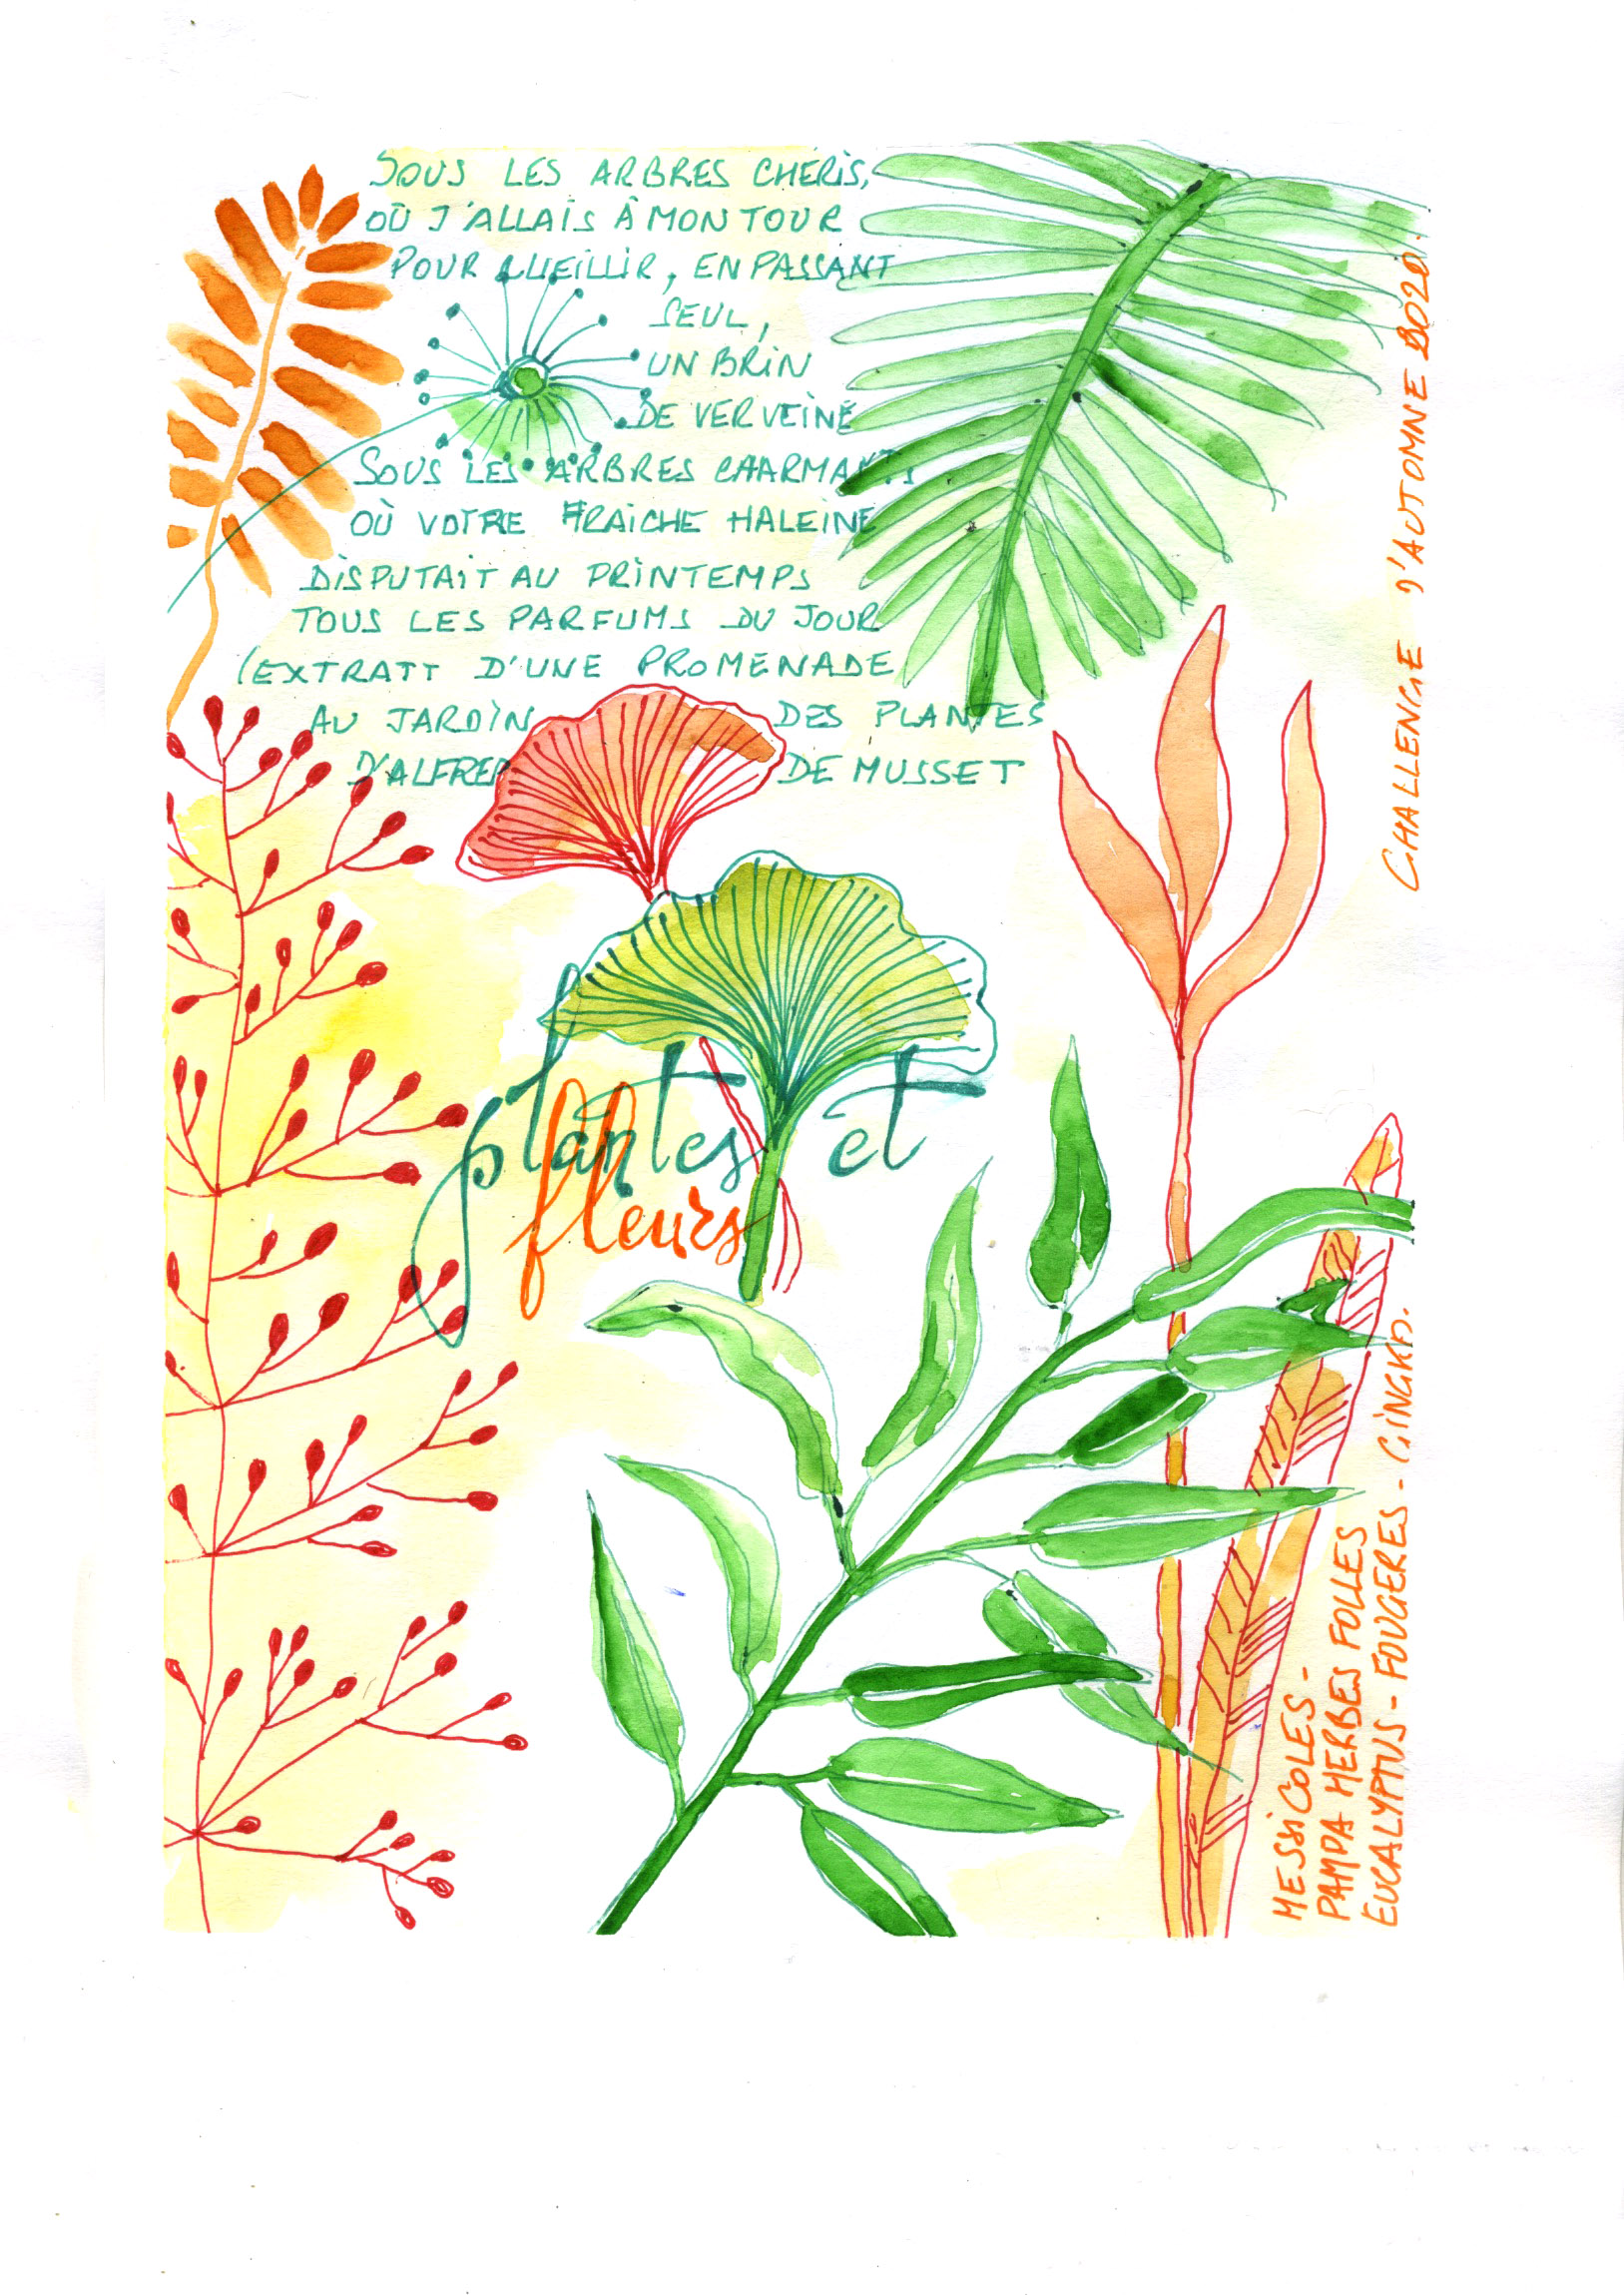 SOUS LES ARBRES CHERIS,
OÙ J'ALLAIS À MON TOUR
POUR CUEILLIR, EN PASSANT
SEUL,
UN BRIN
DE VERVEINE
SOUS LES ARBRES CHARMANTS
OÙ VOTRE FRAICHE HALEINE
DISPUTAIT AU PRINTEMPS
TOUS LES PARFUMS DU JOUR
(EXTRAIT D'UNE PROMENADE
AU JARDIN DES PLANTES
D'ALFRED DE MUSSET
plantes et
fleurs
CHALLENGE D'AUTOMNE 2020.
MESSICOLES -
PAMPA HERBES FOLLES
EUCALYPTUS - FOUGERES - GINGKO.